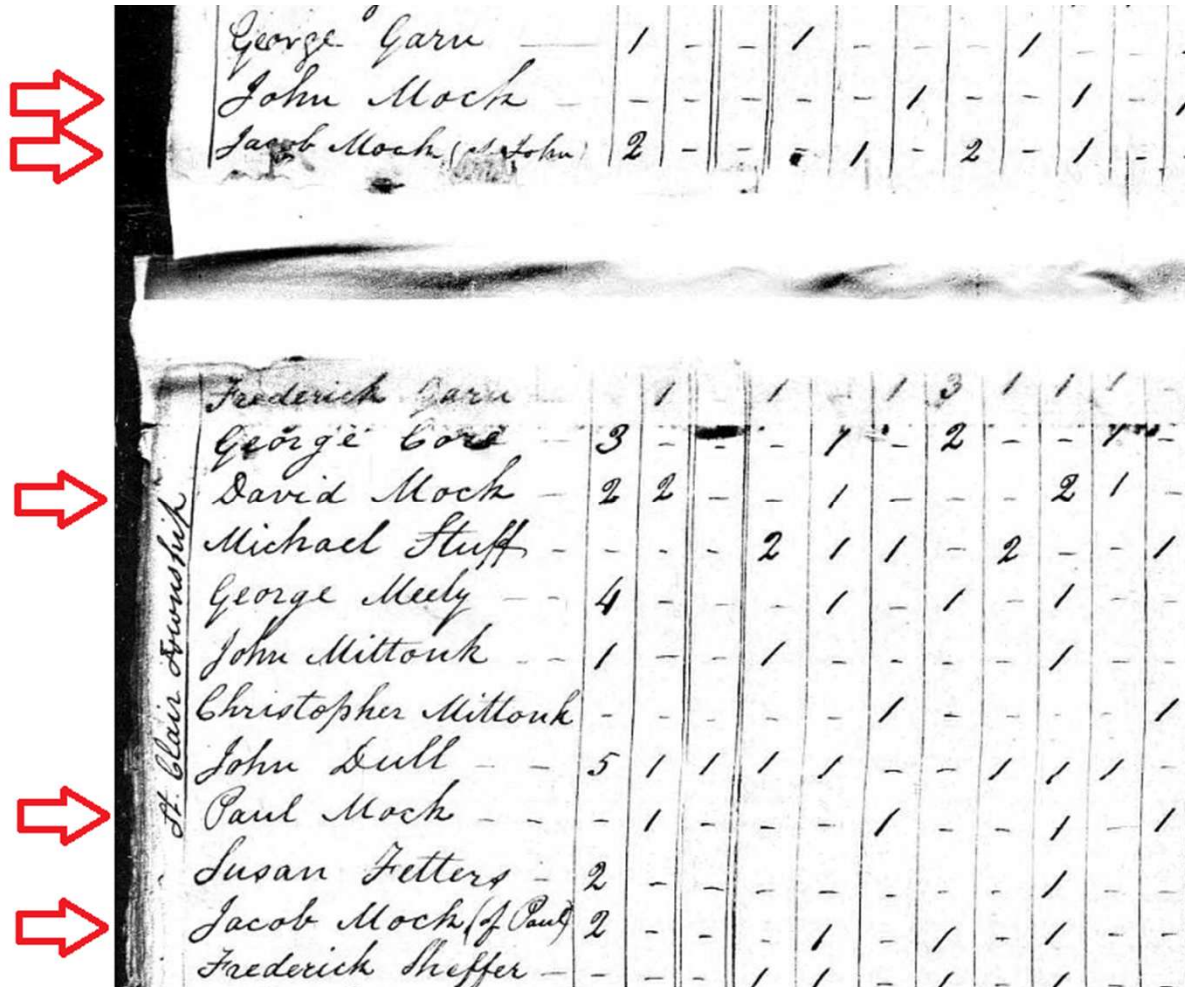 George Garn 1 - - 1 - - - 1 - -
John Mock - - - - - - 1 - - 1 - 1
Jacob Mock (of John) 2 - - - 1 - 2 - 1 - -
Frederick Garn 1 1 1 3 1 1 1 -
George Core - 3 - - - 1 - 2 - - 1 -
David Mock - 2 2 - - 1 - - - 2 1 -
Michael Stuff - - - - 2 1 1 - 2 - - 1
George Meely - - 4 - - - 1 - 1 - 1 - -
John Mittonk - - 1 - - 1 - - - - 1 - -
Christopher Mittonk - - - - - 1 - - - - 1
John Dull - - 5 1 1 1 1 - - 1 1 1 -
Paul Mock - - - - 1 - - - 1 - - 1 - 1
Susan Fetters - 2 - - - - - - - 1 - -
Jacob Mock (of Paul) 2 - - - 1 - 1 - 1 - -
Frederick Sheffer - - - - 1 1 - 1 - 1 - -
St. Clair Township